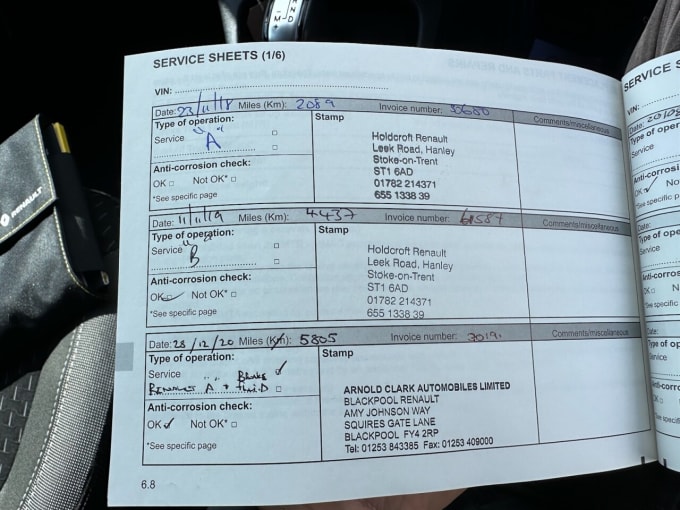 SERVICE SHEETS (1/6)
VIN:
Date: 23/11/18 Miles (Km): 2089 Invoice number: Comments/miscellaneous
Type of operation:
Service "A"
Anti-corrosion check:
OK Not OK*
*See specific page
Stamp
Holdcroft Renault
Leek Road, Hanley
Stoke-on-Trent
ST1 6AD
01782 214371
655 1338 39
Date: 11/11/19 Miles (Km): 4437 Invoice number: 61587 Comments/miscellaneous
Type of operation:
Service "B"
Anti-corrosion check:
OK ✓ Not OK*
*See specific page
Stamp
Holdcroft Renault
Leek Road, Hanley
Stoke-on-Trent
ST1 6AD
01782 214371
655 1338 39
Date: 28/12/20 Miles (Km): 5805 Invoice number: Comments/miscellaneous
Type of operation:
Service Brake ✓
A +
Anti-corrosion check:
OK ✓ Not OK*
*See specific page
Stamp
ARNOLD CLARK AUTOMOBILES LIMITED
BLACKPOOL RENAULT
AMY JOHNSON WAY
SQUIRES GATE LANE
BLACKPOOL FY4 2RP
Tel: 01253 843385 Fax: 01253 409000
6.8
SERVICE S
VIN:
Date:
Type of oper
Service
Anti-corrosi
OK ✓ No
*See specific
Date:
Type of ope
Service
Anti-corros
Date:
RENAULT